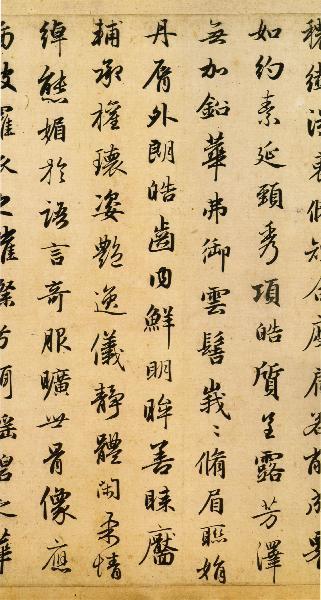 穠纖得衷脩短合度肩若削成腰
如約素延頸秀項皓質呈露芳澤
無加鉛華弗御雲髻峩〻脩眉聯娟
丹脣外朗皓齒内鮮明眸善睞靨
輔承權瓌姿艷逸儀靜體閑柔情
綽態媚於語言奇服曠世骨像應
而披羅衣之璀粲兮珥瑤碧之華